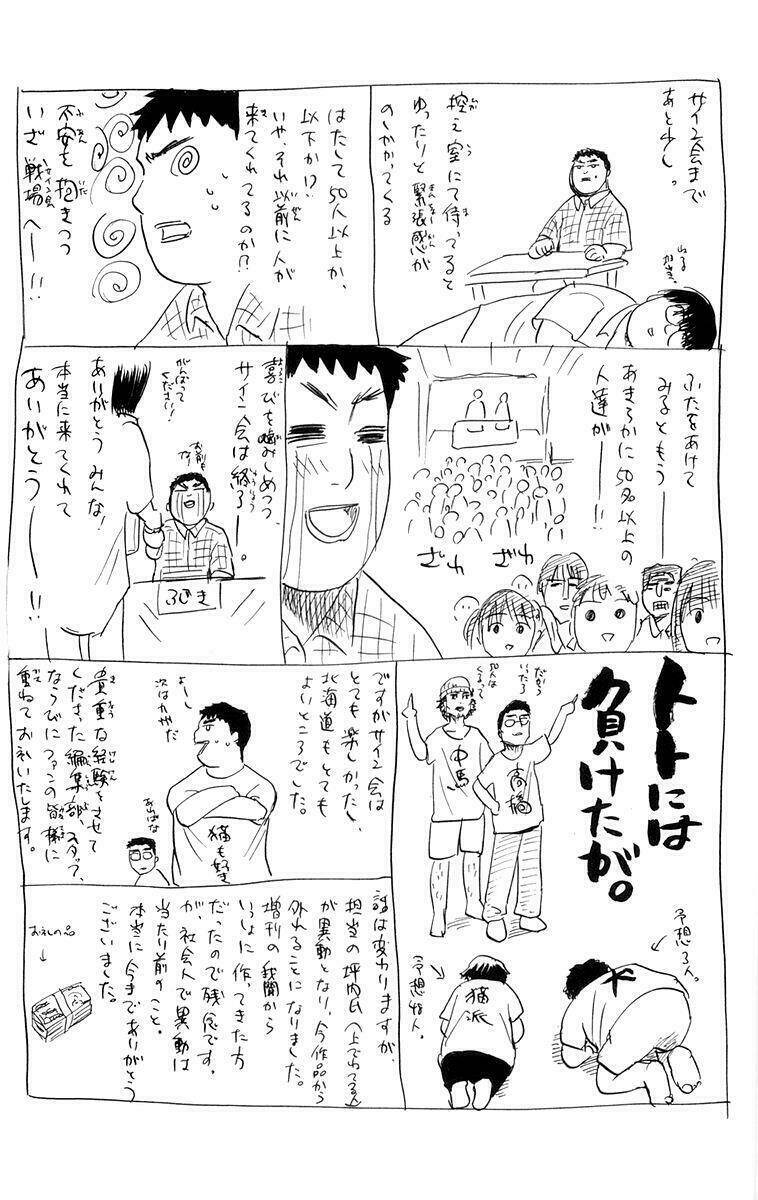 サイン会まで
あと少し。
控え室にて待ってると
ゆったりと緊張感が
のしかかってくる
ねる
担当。
はたして50人以上か、
以下か!?
いや、それ以前に人が
来てくれてるのか!?
不安を抱きつつ
いざ戦場へー!!
サイン会
ふたをあけて
みるともう――
あきらかに50名以上の
人達が――!!
ざわ
ざわ
喜びを噛みしめつつ、
サイン会は終了――。
がんばって
ください!
お前も
な
ふじき
ありがとうみんな!
本当に来てくれて
あいがとう――!!
トトには
負けたが。
だから
いったろ
中馬
高橋
予想3人。
予想10人。
猫派
ですがサイン会は
とても楽しかったし、
北海道もとても
よいところでした。
よーし
次はカゲだ
猫も好き
あらばな
貴重な経験をさせて
くださった編集部、スタッフ、
ならびにファンの皆様に
重ねてお礼いたします。
話は変わりますが、
担当の坪内氏(上でねてる人)
が異動となり、今作品から
外れることになりました。
増刊の我聞から
いっしょに作ってきた方
だったので残念です。
が、社会人で異動は
当たり前のこと。
本当に今までありがとう
ございました。
お礼の品